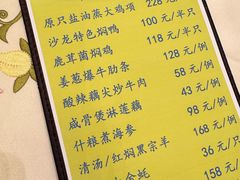 原只盐油蒸大鸡项 228元
沙龙特色焖鸭 100元/半只
鹿茸菌焖鸡 118元/半只
姜葱爆牛肋条 128元/例
酸辣藕尖炒牛肉 58元/例
咸骨煲淋莲藕 43元/例
什粮煮海参 98元/例
清汤/红焖黑宗羊 168元/例
158元/
36元/